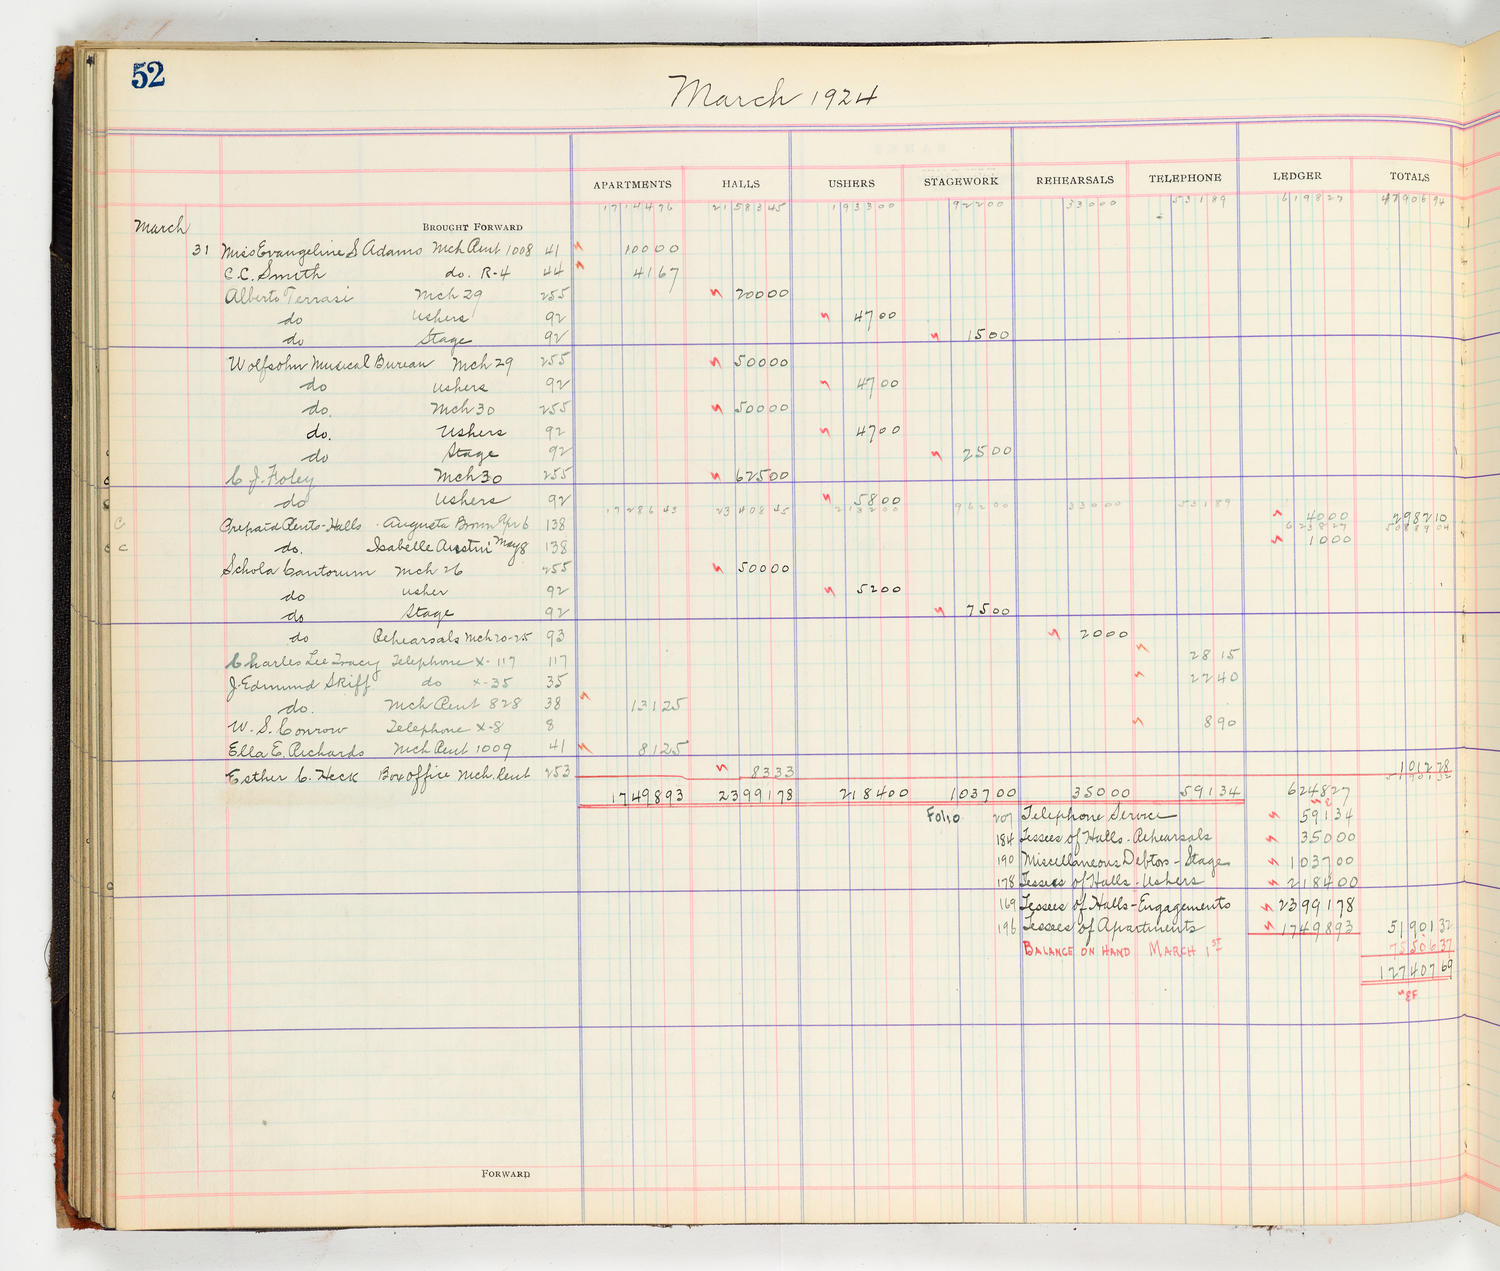 52
March 1924
APARTMENTS HALLS USHERS STAGEWORK REHEARSALS TELEPHONE LEDGER TOTALS
1714476 2158345 193300 92200 33000 53189 619827 4790694
March BROUGHT FORWARD
31 Miss Evangeline S Adams Mch Rent 1008 41 10000
C.C. Smith do. R-4 44 4167
Alberto Terrasi Mch 29 255 20000
do Ushers 92 4700
do Stage 92 1500
Wolfsohn Musical Bureau Mch 29 255 50000
do ushers 92 4700
do. Mch 30 255 50000
do. Ushers 92 4700
do Stage 92 2500
C J. Foley Mch 30 255 62500
do Ushers 92 5800
1728643 2340845 213200 96200 33000 53189
C Prepaid Rents-Halls. Augusta Brown Apr 6 138 4000 298210
623827 5088904
C do. Isabelle Austin May 8 138 1000
Schola Cantorum Mch 26 255 50000
do usher 92 5200
do Stage 92 7500
do Rehearsals Mch 20-25 93 2000
Charles Lee Tracy Telephone X-117 117 2815
J. Edmund Skiff do X-35 35 2240
do. Mch Rent 828 38 13125
W. S. Conrow Telephone X-8 8 890
Ella E. Richards Mch Rent 1009 41 8125
Esther C. Heck Box office Mch. Rent 253 8333 101228
5190132
1749893 2399178 218400 103700 35000 59134 624827
Folio 207 Telephone Service 59134
184 Lessees of Halls. Rehearsals 35000
190 Miscellaneous Debtors - Stage 103700
178 Lessees of Halls. Ushers 218400
169 Lessees of Halls-Engagements 2399178
196 Lessees of Apartments 1749893 5190132
BALANCE ON HAND MARCH 1ST 7550637
12740769
FORWARD